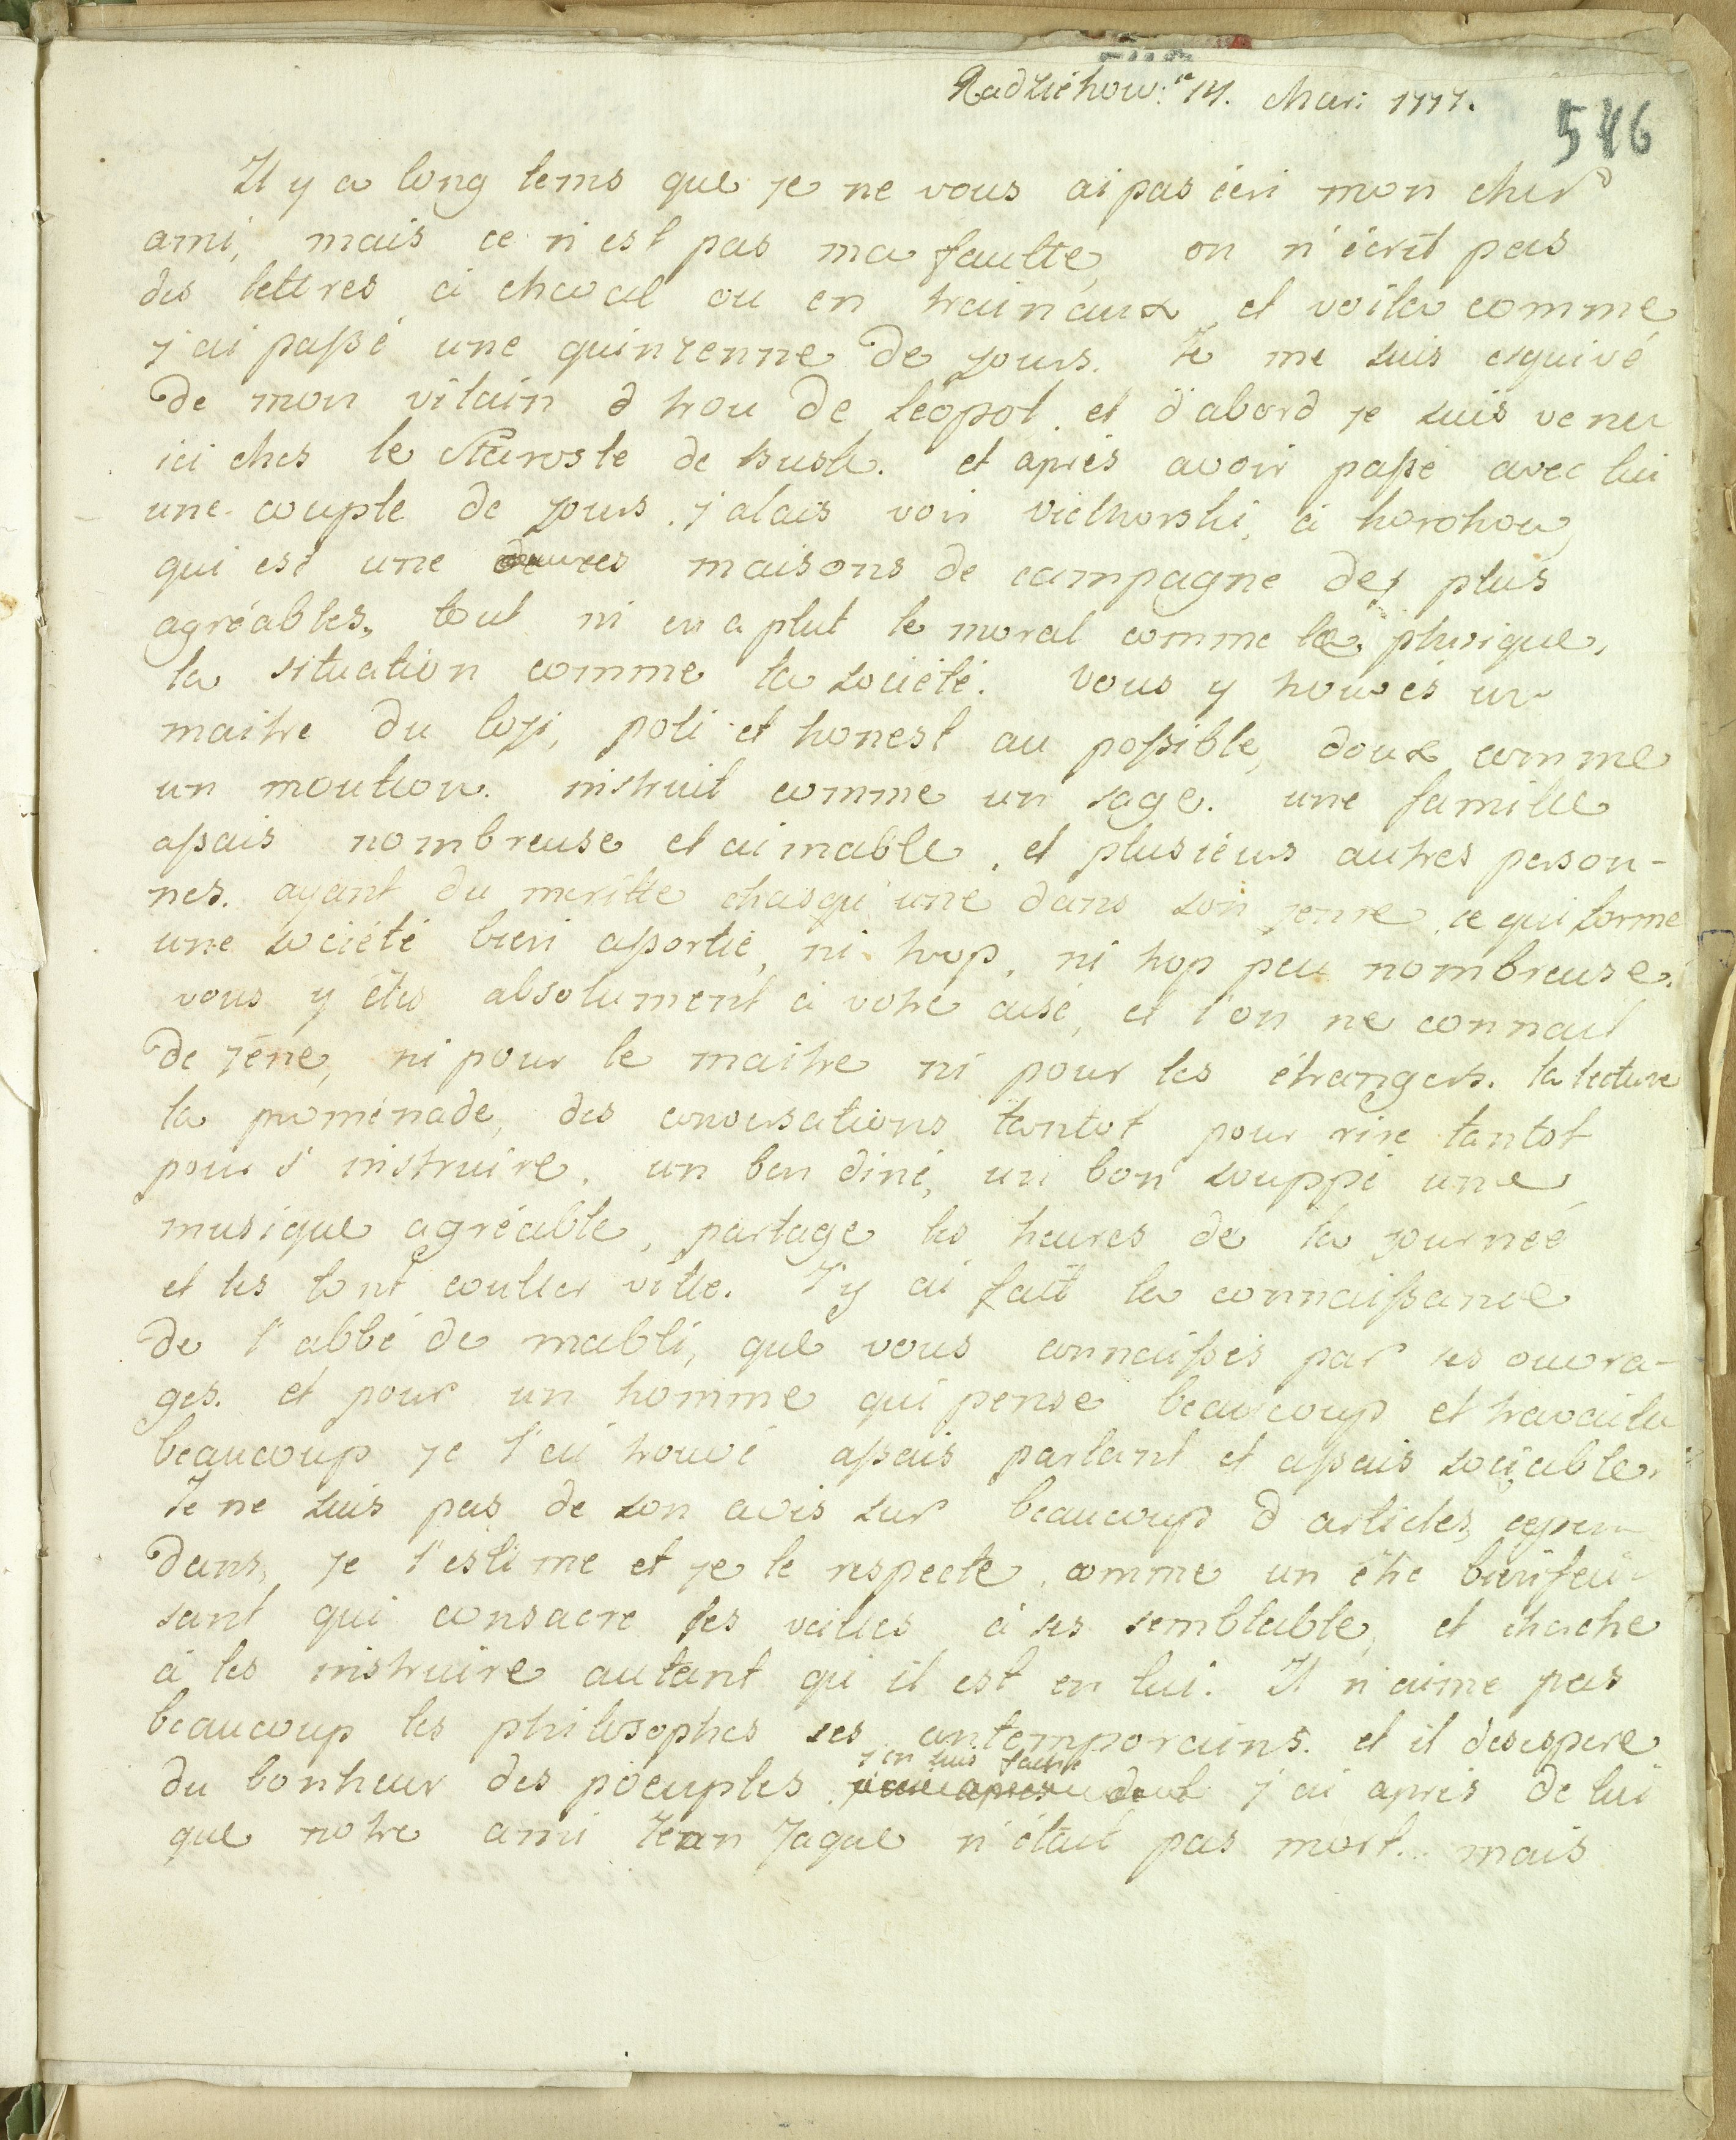 Radziéhow: 14. Mar: 1777.
546
Il y a long tems que je ne vous ai pas écri mon cher
ami, mais ce n'est pas ma faulte, on n'écrit pas
des lettres à cheval ou en trainaux et voila comme
j'ai passé une quinzenne de jours. Je me suis esquivé
de mon vilain trou de Léopol. et d'abord je suis venu
ici ches le Staroste de Busk. et après avoir passé avec lui
une couple de jours, j'alais voir Vielhorski, à horohow
qui est une maisons de campagne des plus
agréables, tout m'en a plut le moral comme le phisique,
la situation comme la société. Vous y trouvés un
maitre du logi, poli et honest au possible, doux comme
un mouton. instruit comme un sage. une famille
assais nombreuse et aimable, et plusieurs autres person-
nes. ayant du meritte chasqu'une dans son jenre, ce qui forme
une société bien assortie, ni trop, ni trop peu nombreuse.
vous y êtes absolument à votre aisé, et l'on ne connait
de jéne, ni pour le maitre ni pour les étrangers. la lecture
la proménade, des conversations tantot pour rire tantot
pour s'instruire, un bon diné, un bon souppé une
musique agréable, partage les heures de la journeé
et les font couller vitte. J'y ai fait la connaissance
de l'abbé de mabli, que vous connaissés par ses ouvra-
ges. et pour un homme qui pense beaucoup et travaille
beaucoup je l'ai trouvé assais parlant et assais sociable.
Je ne suis pas de son avis sur beaucoup d'articles, cepen-
dans, je l'estime et je le respecte, comme un être bienfai-
sant qui consacre ses veilles à ses semblable, et cherche
à les instruire autant qu'il est en lui. Il n'aime pas
beaucoup les philosophes ses contemporains. et il desespere
j'en suis faché
du bonheur des poeuples. j'ai apris de lui
que notre ami Jean Jaque n'était pas mort.. mais